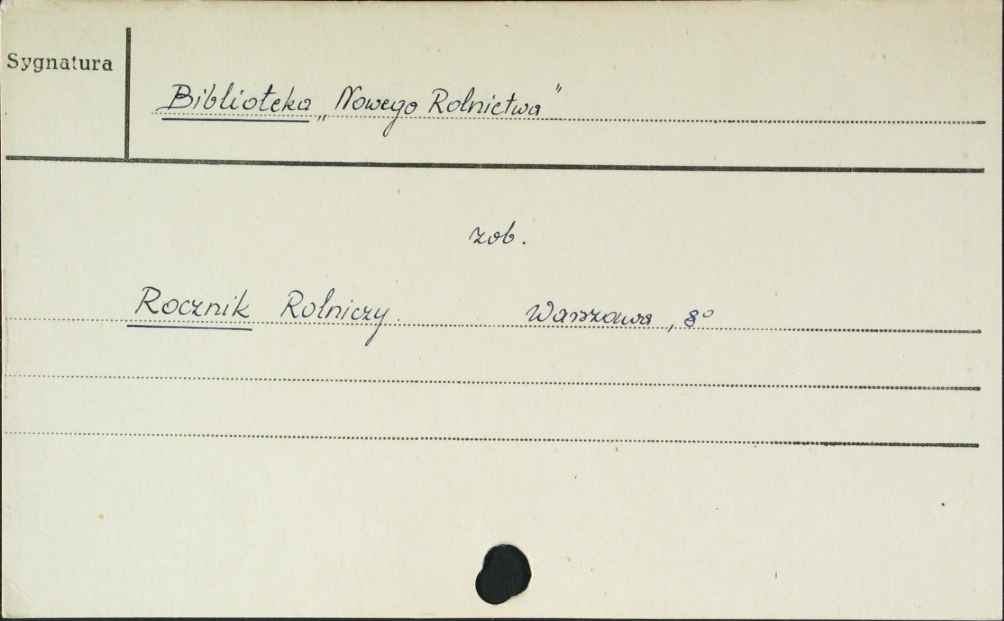 Sygnatura
Biblioteka „Nowego Rolnictwa"
zob.
Rocznik Rolniczy. Warszawa, 8°